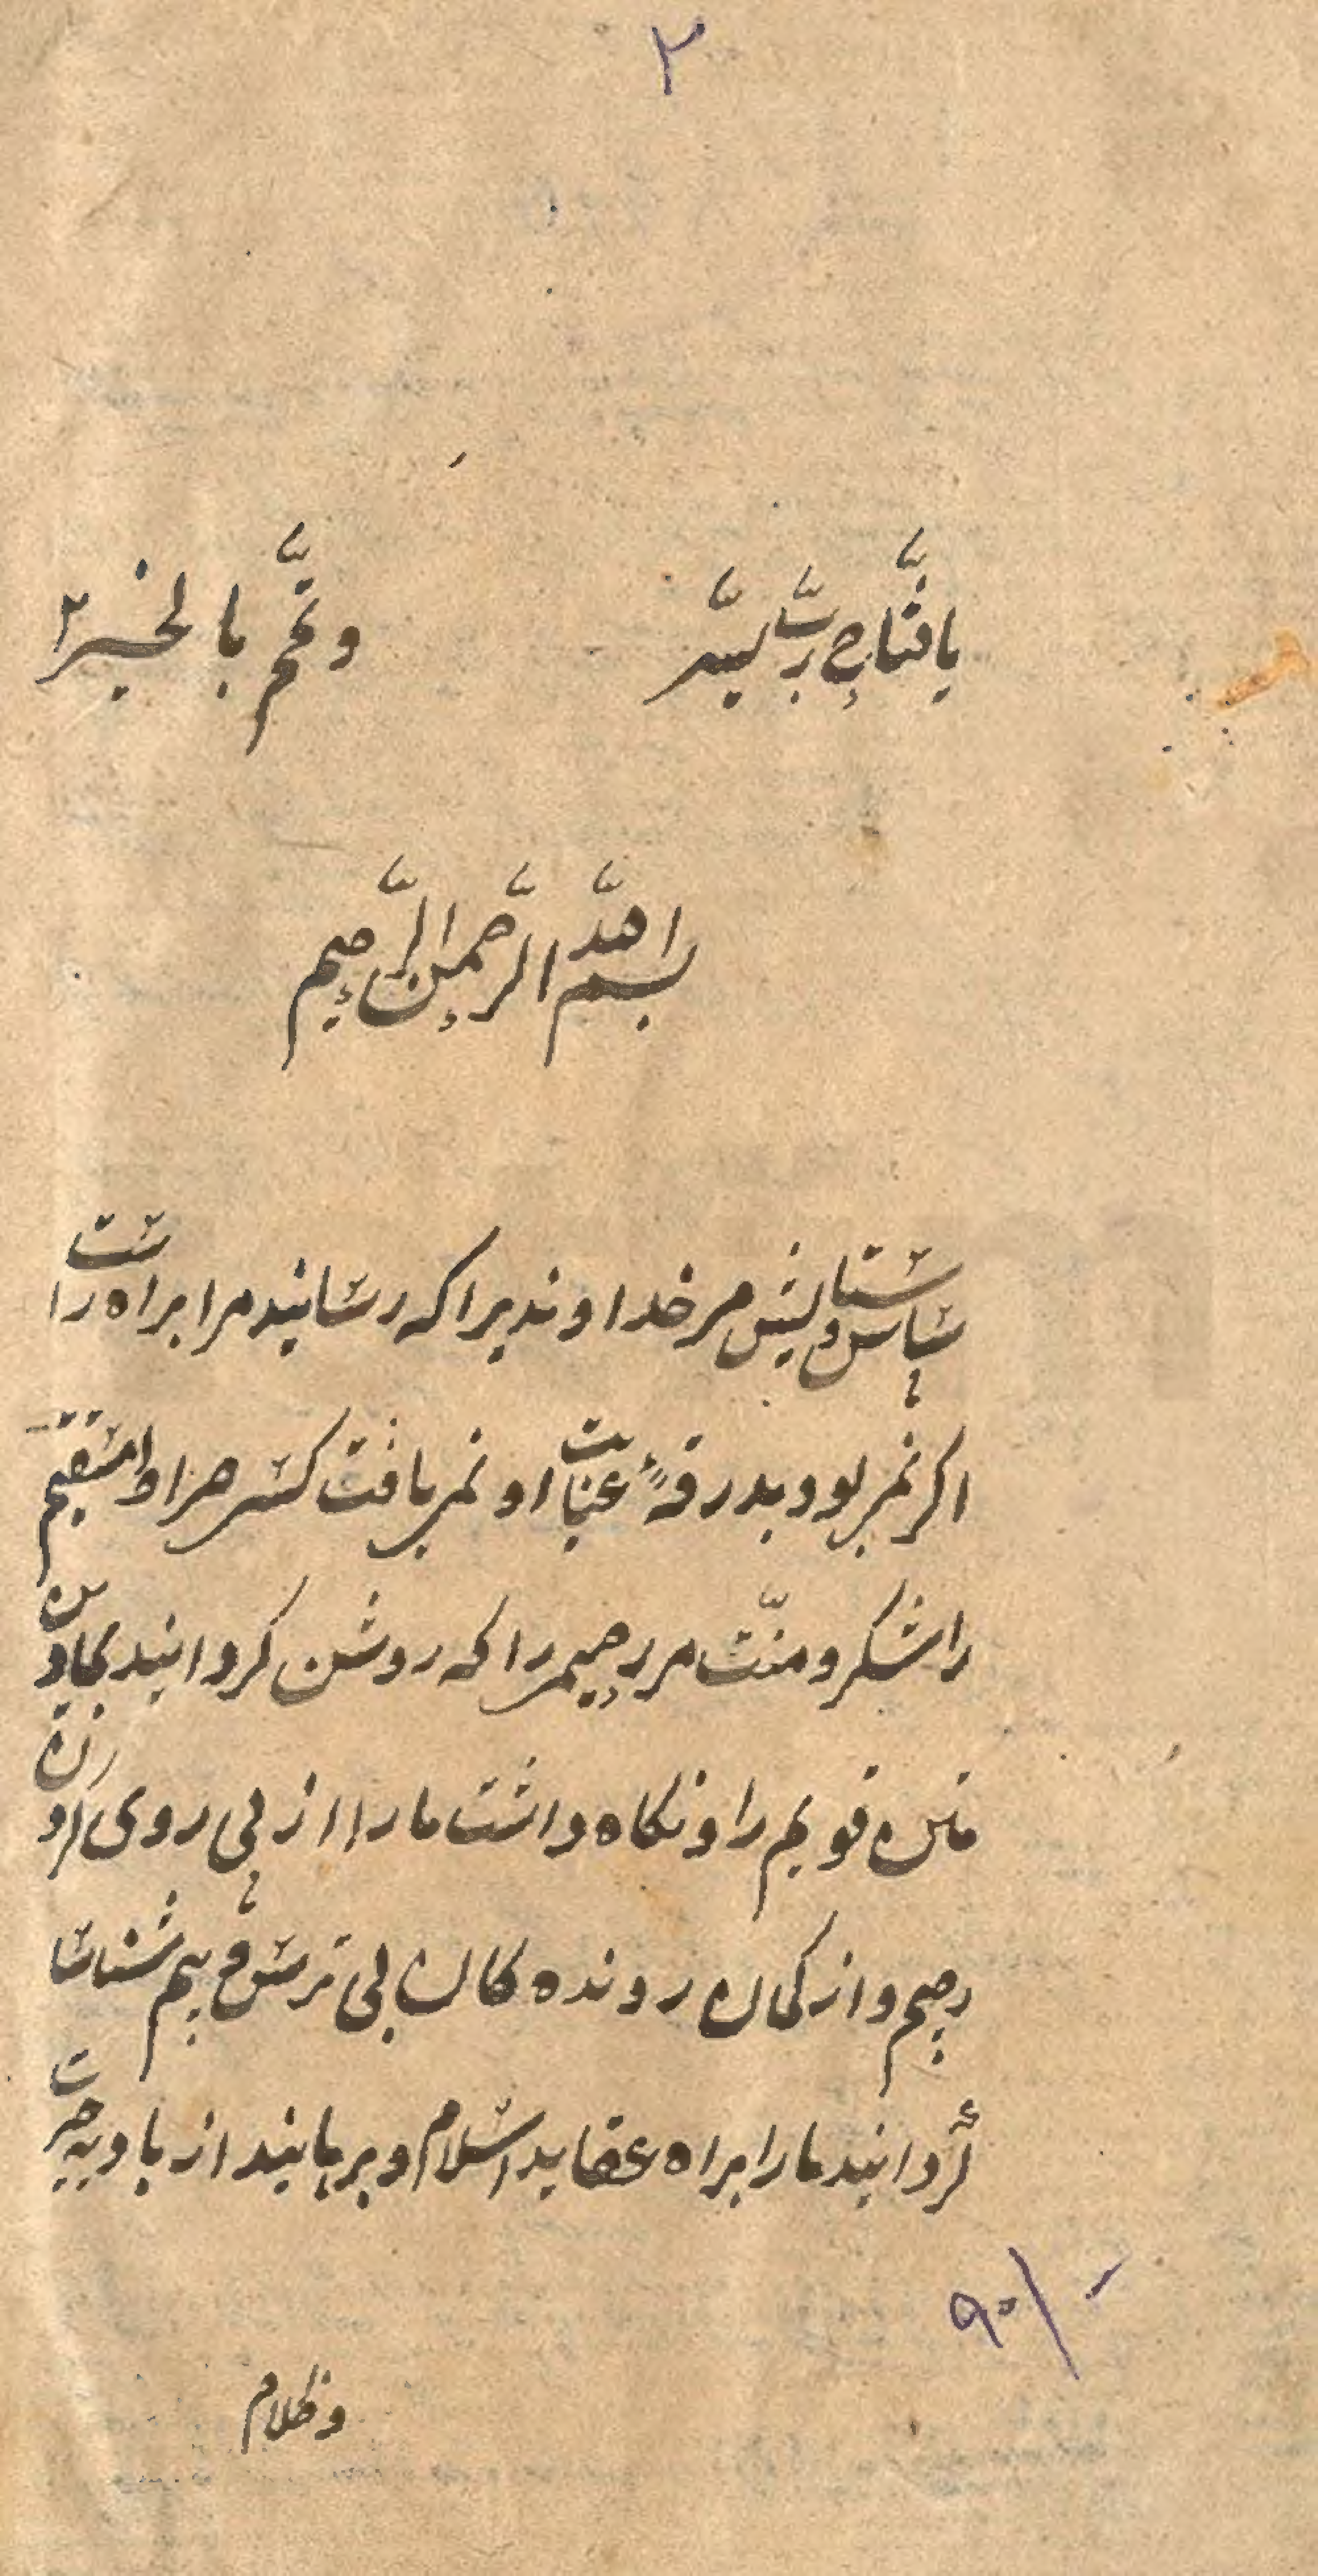 ۲
یا فتاح رب یسّر وتمّم بالخیر
بسم الله الرَّحمن الرَّحیم
سپاس و ستایش مر خداوندیرا که رسانید مرا براه راست
اکر نمی بود بدرقهٔ عنایت او نمی یافت کسی صراط مستقیم
را شکر و منّت مر رحیمی را که روشن کردانید
متین قویم را و نکاه داشت مارا از پی روی
رجیم و از کمان رونده کان بی ترس و بیم شناسا
کردانید مارا براه عقاید اسلام و برهانید از بادیه حیرت
۹۰/-
وظلام